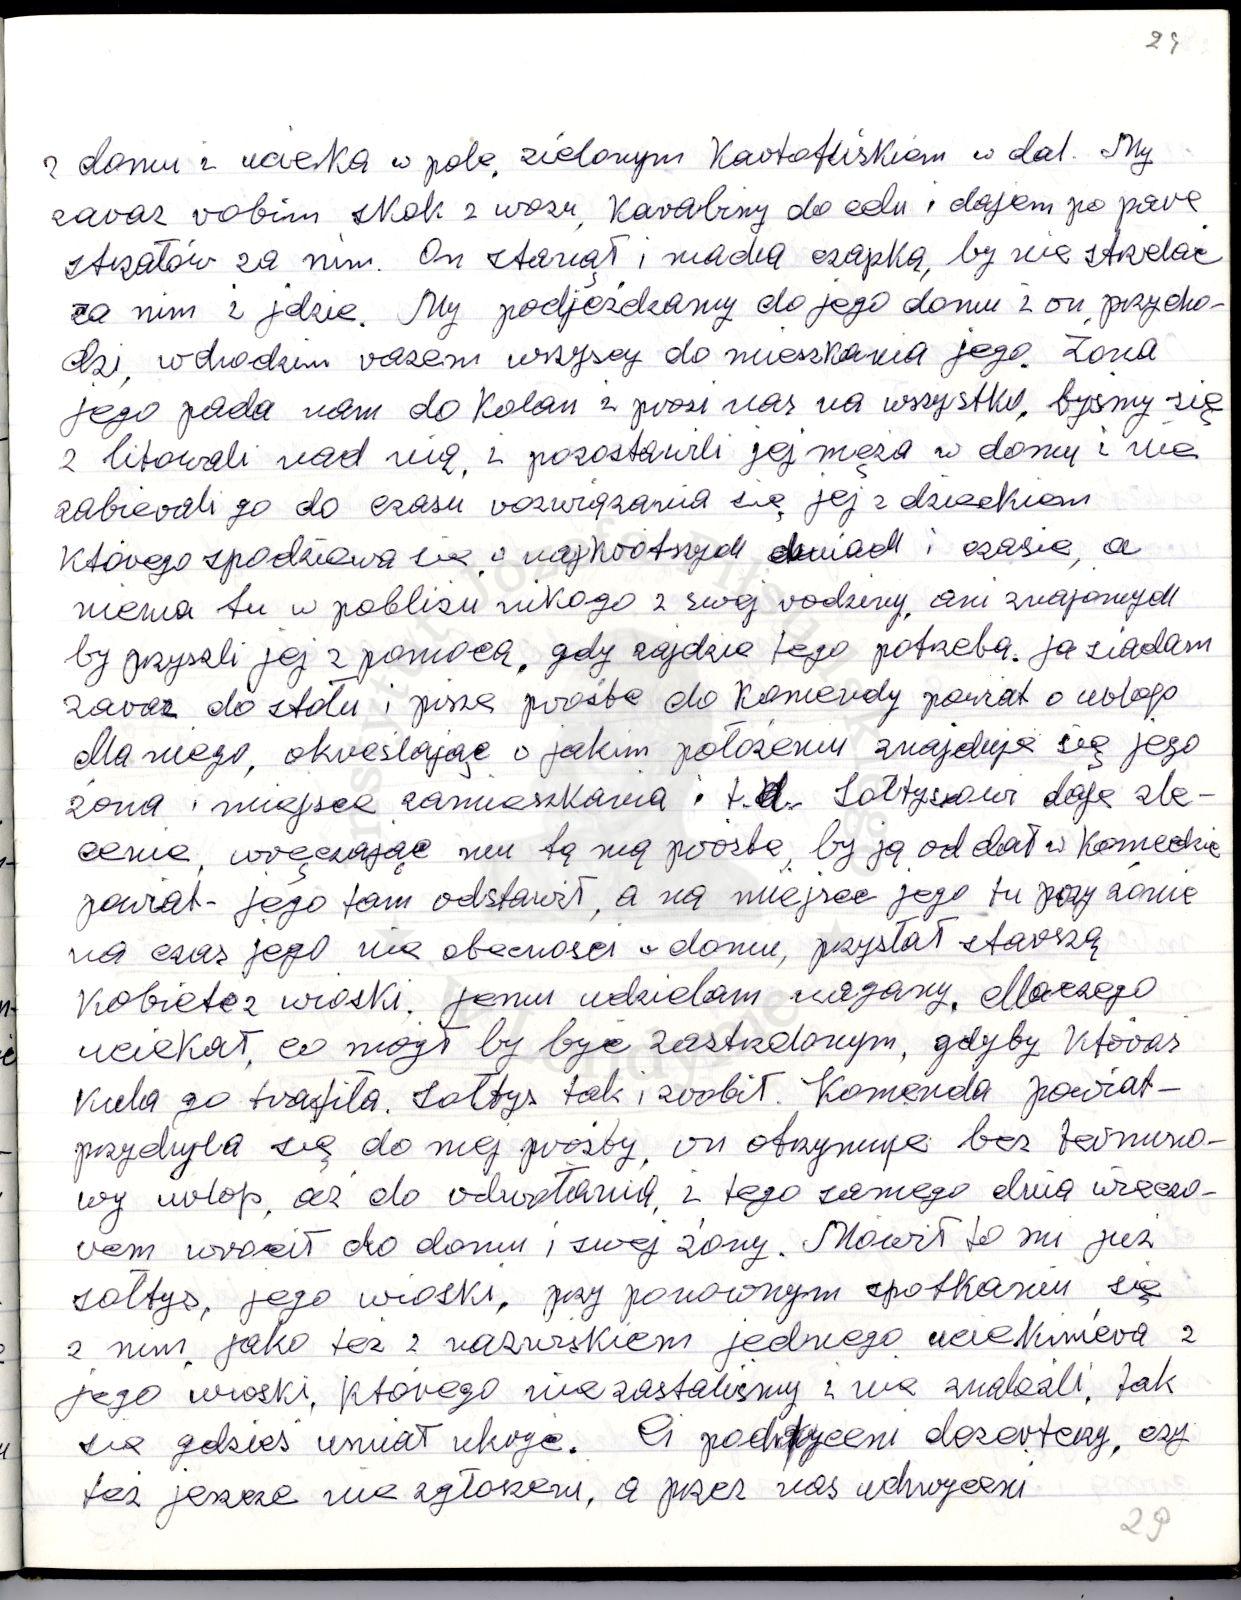 29
z domu i ucieka w pole, zielonym Kartofliskiem w dal. My
zaraz robim skok z wozu, Karabiny do celu i dajem po parę
strzałów za nim. On stanął i macha czapką, by nie strzelać
za nim i jdzie. My podjeżdzamy do jego domu i on przycho-
dzi, wchodzim razem wszyscy do mieszkania jego. Żona
jego pada nam do Kolan i prosi nas na wszystko, byśmy się
z litowali nad nią, i pozostawili jej męża w domu i nie
zabierali go do czasu rozwiązania się jej z dzieckiem
Którego spodziewa się w najkrótszych dniach i czasie, a
niema tu w pobliżu nikogo z swej rodziny, ani znajomych
by przyszli jej z pomocą, gdy zajdzie tego potrzeba. Ja siadam
zaraz do stołu i piszę prośbę do Komendy powiat o urlop
dla niego, określając w jakim położeniu znajduje się jego
żona i miejsce zamieszkania i t.d. Sołtysowi daję zle-
cenie, wręczając mu tą mą prośbę, by ją oddał w Komedzie
powiat- jego tam odstawił, a na miejsce jego tu przy żonie
na czas jego nie obecności w domu, przysłał starszą
Kobietę z wioski. Jemu udzielam nagany, dlaczego
uciekał, co mógł by być zastrzelonym, gdyby Któraś
Kula go trafiła. Sołtys tak i zrobił. Komenda powiat-
przychyla się do mej prośby, on otrzymuje bez termino-
wy urlop, aż do odwołania, i tego samego dnia wieczo-
rem wrócił do domu i swej żony. Mówił to mi już
sołtys, jego wioski, przy ponownym spotkaniu się
z nim, jako też z nazwiskiem jednego uciekiniera z
jego wioski, Którego nie zastaliśmy i nie znaleźli, tak
się gdzieś umiał ukryć. Ci podchyceni dezerterzy, czy
też jeszcze nie zgłoszeni, a przez nas uchwyceni
29